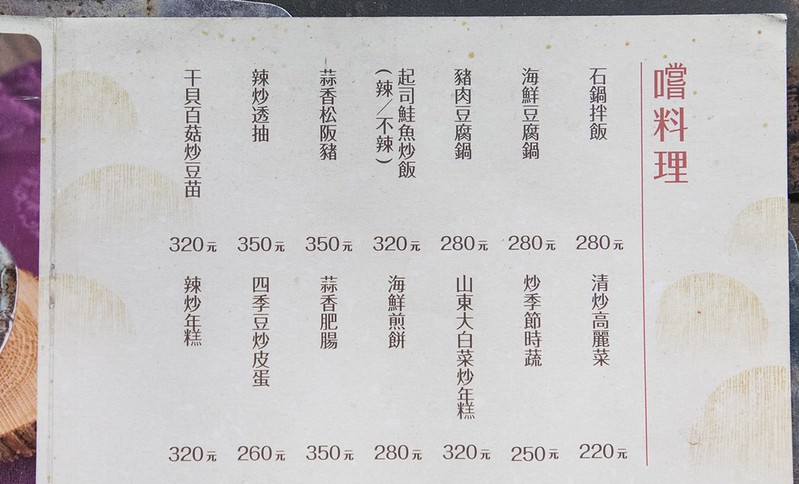 嚐料理
石鍋拌飯
280元
海鮮豆腐鍋
280元
豬肉豆腐鍋
280元
起司鮭魚炒飯
(辣／不辣)
320元
蒜香松阪豬
350元
辣炒透抽
350元
干貝百菇炒豆苗
320元
清炒高麗菜
220元
炒季節時蔬
250元
山東大白菜炒年糕
320元
海鮮煎餅
280元
蒜香肥腸
350元
四季豆炒皮蛋
260元
辣炒年糕
320元